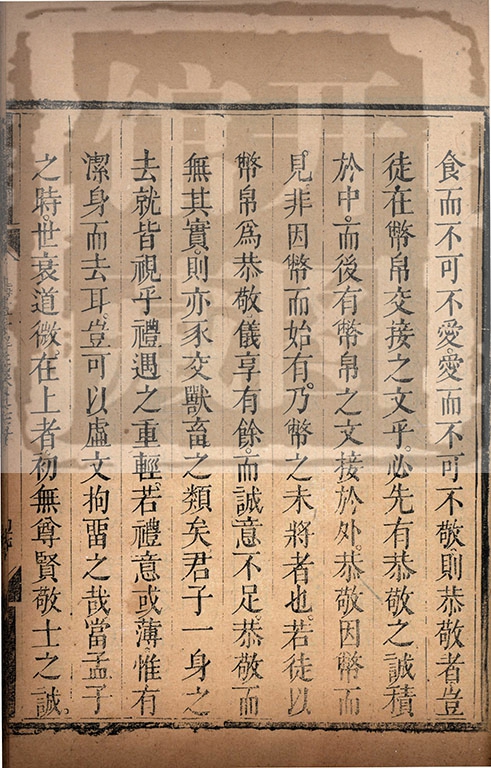 食而不可不愛愛而不可不敬則恭敬者豈
徒在幣帛交接之文乎必先有恭敬之誠積
於中而後有幣帛之文接於外恭敬因幣而
見非因幣而始有乃幣之未將者也若徒以
幣帛為恭敬儀享有餘而誠意不足恭敬而
無其實則亦豕交獸畜之類矣君子一身之
去就皆視乎禮遇之重輕若禮意或薄惟有
潔身而去耳豈可以虛文拘留之哉當孟子
之時世衰道微在上者初無尊賢敬士之誠